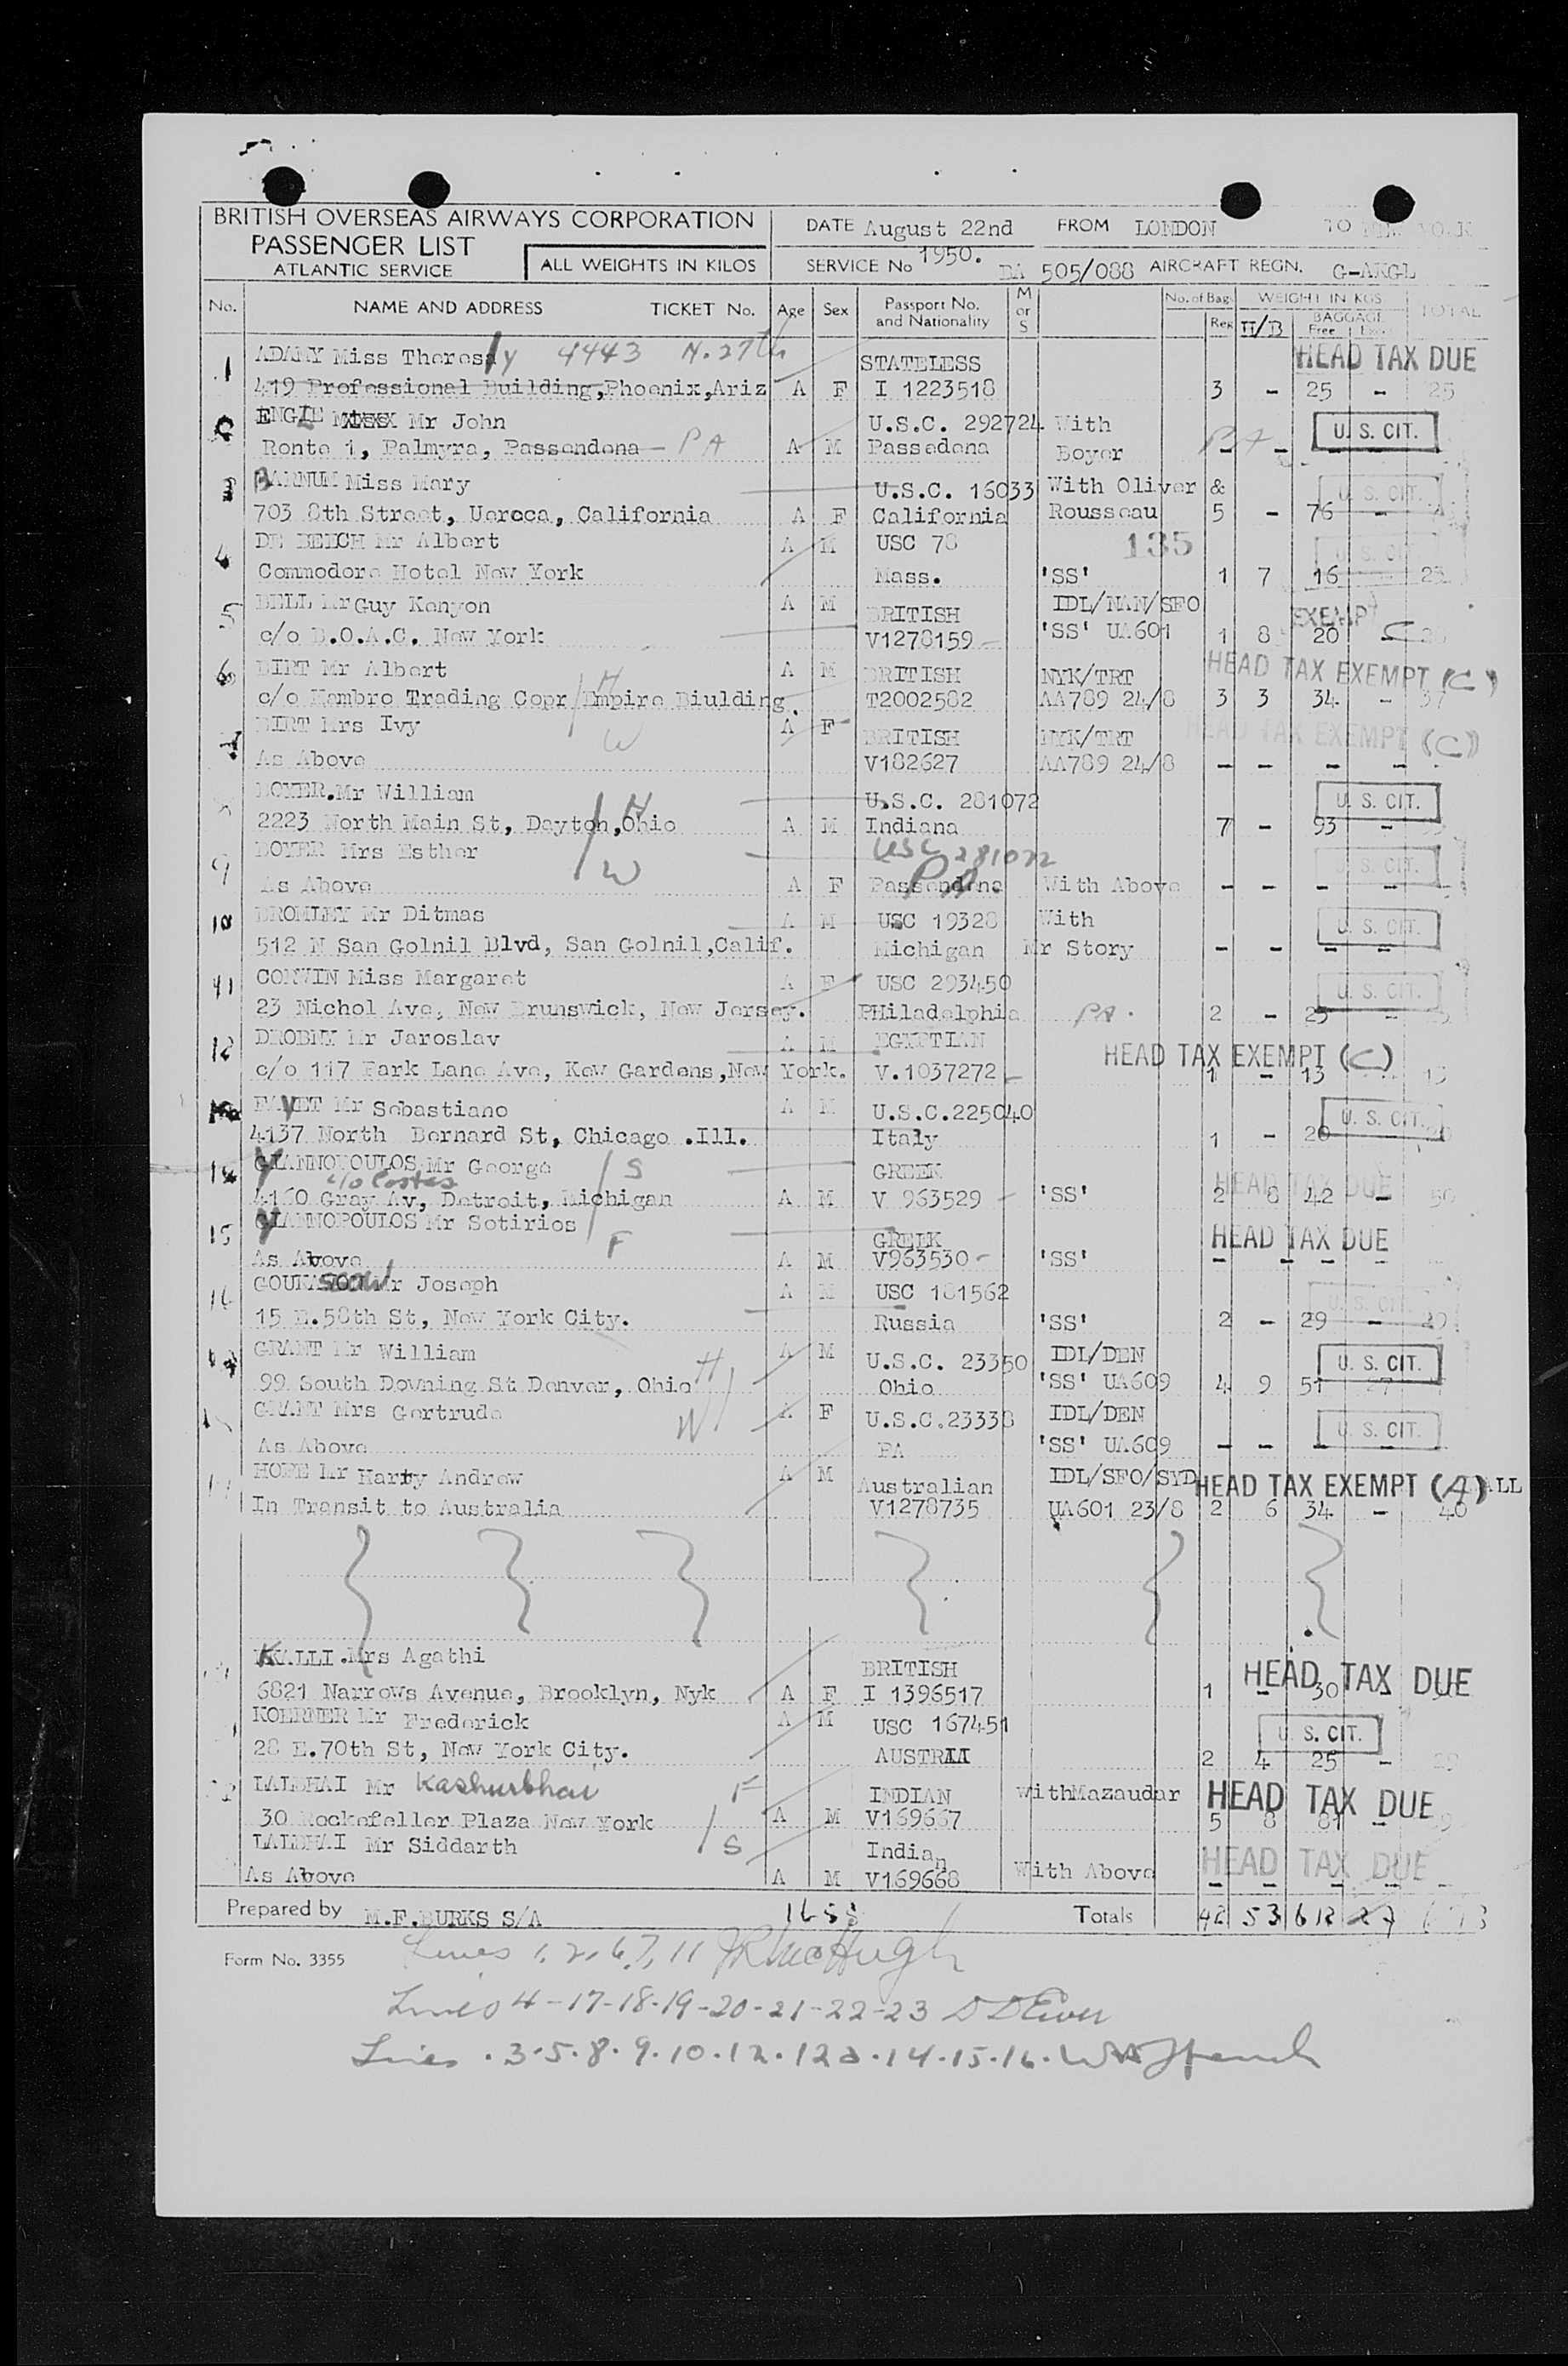 BRITISH OVERSEAS AIRWAYS CORPORATION
PASSENGER LIST
ATLANTIC SERVICE
ALL WEIGHTS IN KILOS
DATE August 22nd 1950.
FROM LONDON TO
SERVICE No BA 505/088 AIRCRAFT REGN. G-AKGL
No. NAME AND ADDRESS TICKET No. Age Sex Passport No. and Nationality M or S No. of Bags Reg H/B WEIGHT IN KGS BAGGAGE Free TOTAL
1 ADAMY Miss Theresa y 4443 N. 27th STATELESS HEAD TAX DUE
419 Professional Building, Phoenix, Ariz A F I 1223518 3 - 25 - 25
ENGLE Mr John U.S.C. 292724 With U. S. CIT.
Ronte 1, Palmyra, Passendena - PA A M Passedena Boyer PA - - - -
3 BARNUM Miss Mary U.S.C. 16033 With Oliver & U. S. CIT.
703 8th Street, Uereca, California A F California Rousseau 5 - 76 -
4 DE BEICH Mr Albert A M USC 78 135 U. S. CIT.
Commodore Hotel New York Mass. 'SS' 1 7 16 23
5 BELL Mr Guy Kenyon A M BRITISH IDL/NAN/SFO EXEMPT C
c/o B.O.A.C. New York V1278159 'SS' UA601 1 8 20
6 BIRT Mr Albert H A M BRITISH NYK/TRT HEAD TAX EXEMPT (C)
c/o Hambro Trading Copr Empire Biulding. T2002582 AA789 24/8 3 3 34 - 37
BIRT Mrs Ivy W A F BRITISH NYK/TRT HEAD TAX EXEMPT (C)
As Above V182627 AA789 24/8 - - - -
BOYER. Mr William H U.S.C. 281072 U. S. CIT.
2223 North Main St, Dayton, Ohio A M Indiana 7 - 93 -
9 BOYER Mrs Esther W USC 281072 U. S. CIT.
As Above A F Passendena PA With Above - - - -
10 BROMLEY Mr Ditmas A M USC 19328 With U. S. CIT.
512 N San Golnil Blvd, San Golnil, Calif. Michigan Mr Story - - - -
11 CONWIN Miss Margaret A F USC 293450 U. S. CIT.
23 Nichol Ave, New Brunswick, New Jersey. PHiladelphia PA. 2 - 25 -
12 DROBNY Mr Jaroslav A M EGYPTIAN HEAD TAX EXEMPT (C)
c/o 117 Park Lane Ave, Kew Gardens, New York. V.1037272 1 - 13 13
Mr Sebastiano A M U.S.C.225040 U. S. CIT.
4137 North Bernard St, Chicago .Ill. Italy 1 - 20
14 GIANNOPOULOS Mr George S GREEK HEAD TAX DUE
c/o Costas
4160 Gray Av, Detroit, Michigan A M V 963529 'SS' 2 8 42 - 50
15 GIANNOPOULOS Mr Sotirios F GREEK HEAD TAX DUE
As Above A M V963530 'SS' - - - -
16 Mr Joseph A M USC 181562 U. S. CIT.
15 E.58th St, New York City. Russia 'SS' 2 - 29 - 29
GRANT Mr William H A M U.S.C. 23350 IDL/DEN U. S. CIT.
99 South Downing St Denver, Ohio Ohio 'SS' UA609 4 9 51 27
GRANT Mrs Gertrude W A F U.S.C.23338 IDL/DEN U. S. CIT.
As Above PA 'SS' UA609 - - - -
HOPE Mr Harry Andrew A M Australian IDL/SFO/SYD HEAD TAX EXEMPT (A) ALL
In Transit to Australia V1278735 UA601 23/8 2 6 34 - 40
KKALLI. Mrs Agathi BRITISH HEAD TAX DUE
6821 Narrows Avenue, Brooklyn, Nyk A F I 1396517 1 - 30 -
KOERNER Mr Frederick A M USC 167451 U. S. CIT.
28 E.70th St, New York City. AUSTRIA 2 4 25 - 29
LALBHAI Mr Kasturbhai F INDIAN With Mazaudar HEAD TAX DUE
30 Rockefeller Plaza New York A M V169667 5 8 81 - 89
LALBHAI Mr Siddarth S Indian HEAD TAX DUE
As Above A M V169668 With Above - - - -
Prepared by M.F.BURKS S/A 1655 Totals 42 53 612 27
Form No. 3355
Lines 1, 2, 6, 7, 11 JR McHugh
Lines 4-17-18-19-20-21-22-23
Lines . 3.5.8.9.10.12.12a.14.15.16.